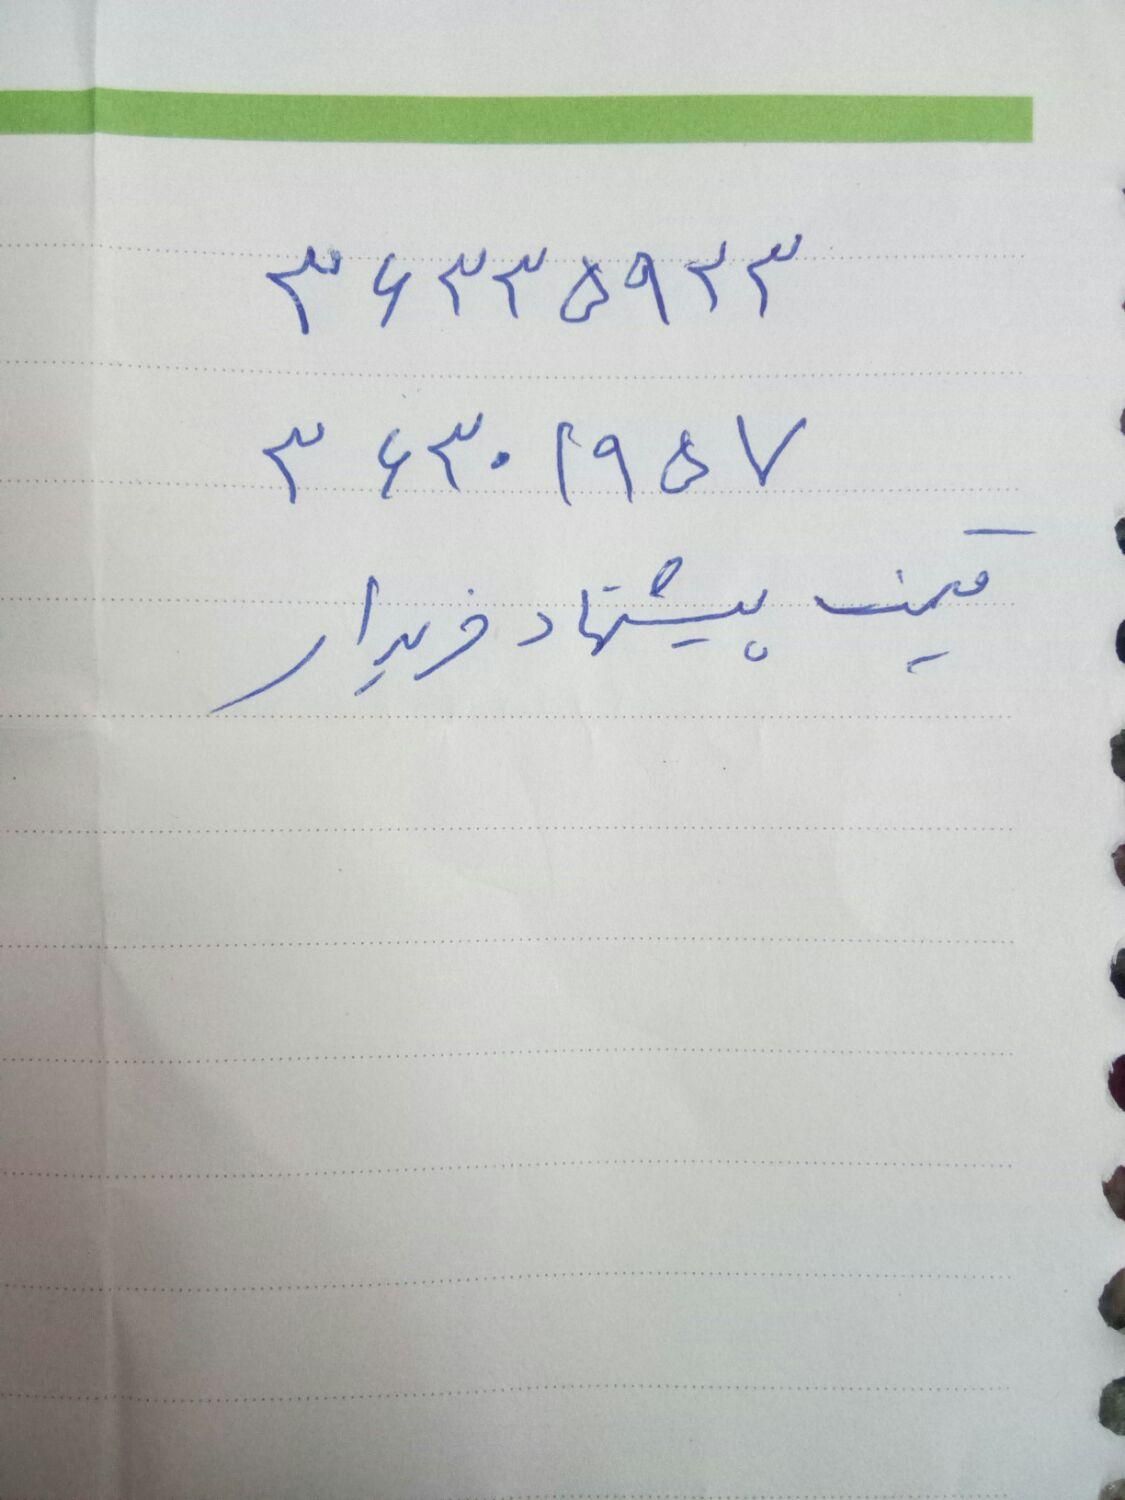 ۳۶۳۳۵۹۲۳
۳۶۳۰۱۹۵۷
قیمت پیشنهاد خریدار